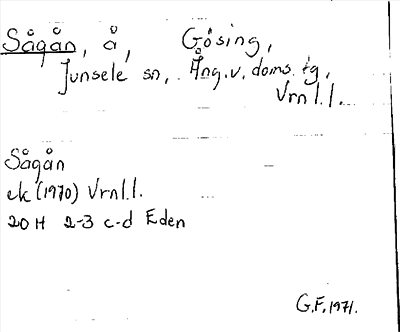 Sågån, å, Gösing,
Junsele sn, Ång.v. doms. tg,
Vrnl.l.
Sågån
ek (1970) Vrnl.l.
20H 2-3 c-d Eden
G.F. 1971.